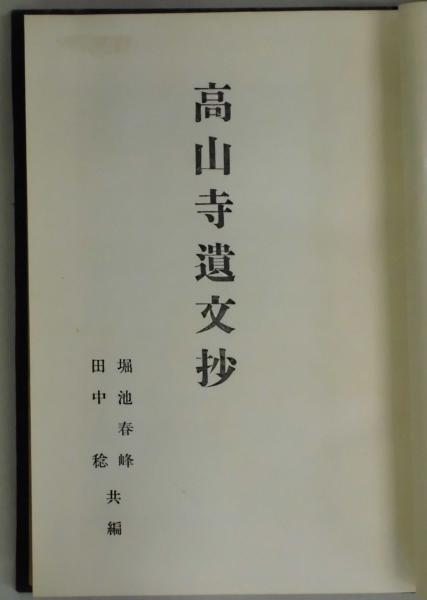 高山寺遺文抄
堀池春峰
田中稔
共編